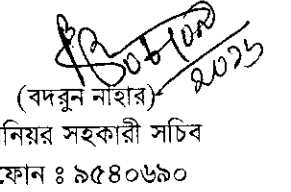 (বদরুন নাহার)
নিয়র সহকারী সচিব
ফোন ঃ ৯৫৪০৬৯০